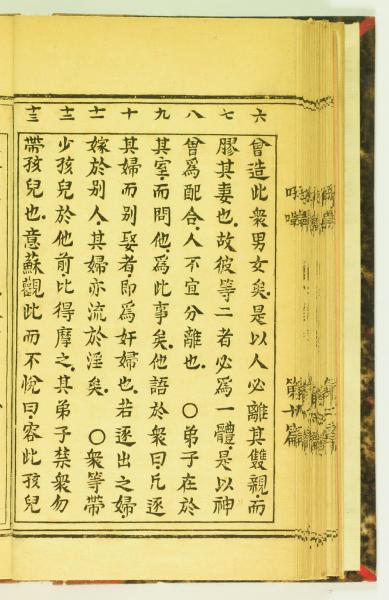 六 曾造此衆男女矣是以人必離其雙親而
七 膠其妻也故彼等二者必爲一體是以神
八 曾爲配合人不宜分離也 ○弟子在於
九 其室而問他爲此事矣他語於衆曰凡逐
十 其婦而别娶者即爲奸婦也若逐出之婦
十一 嫁於别人其婦亦流於淫矣 ○衆等帶
十二 少孩兒於他前比得摩之其弟子禁衆勿
十三 帶孩兒也意蘇觀此而不悅曰容此孩兒